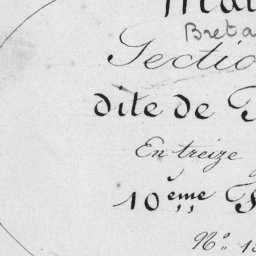 Breta
Sectio
dite de
En treize
10ème
N°. 1